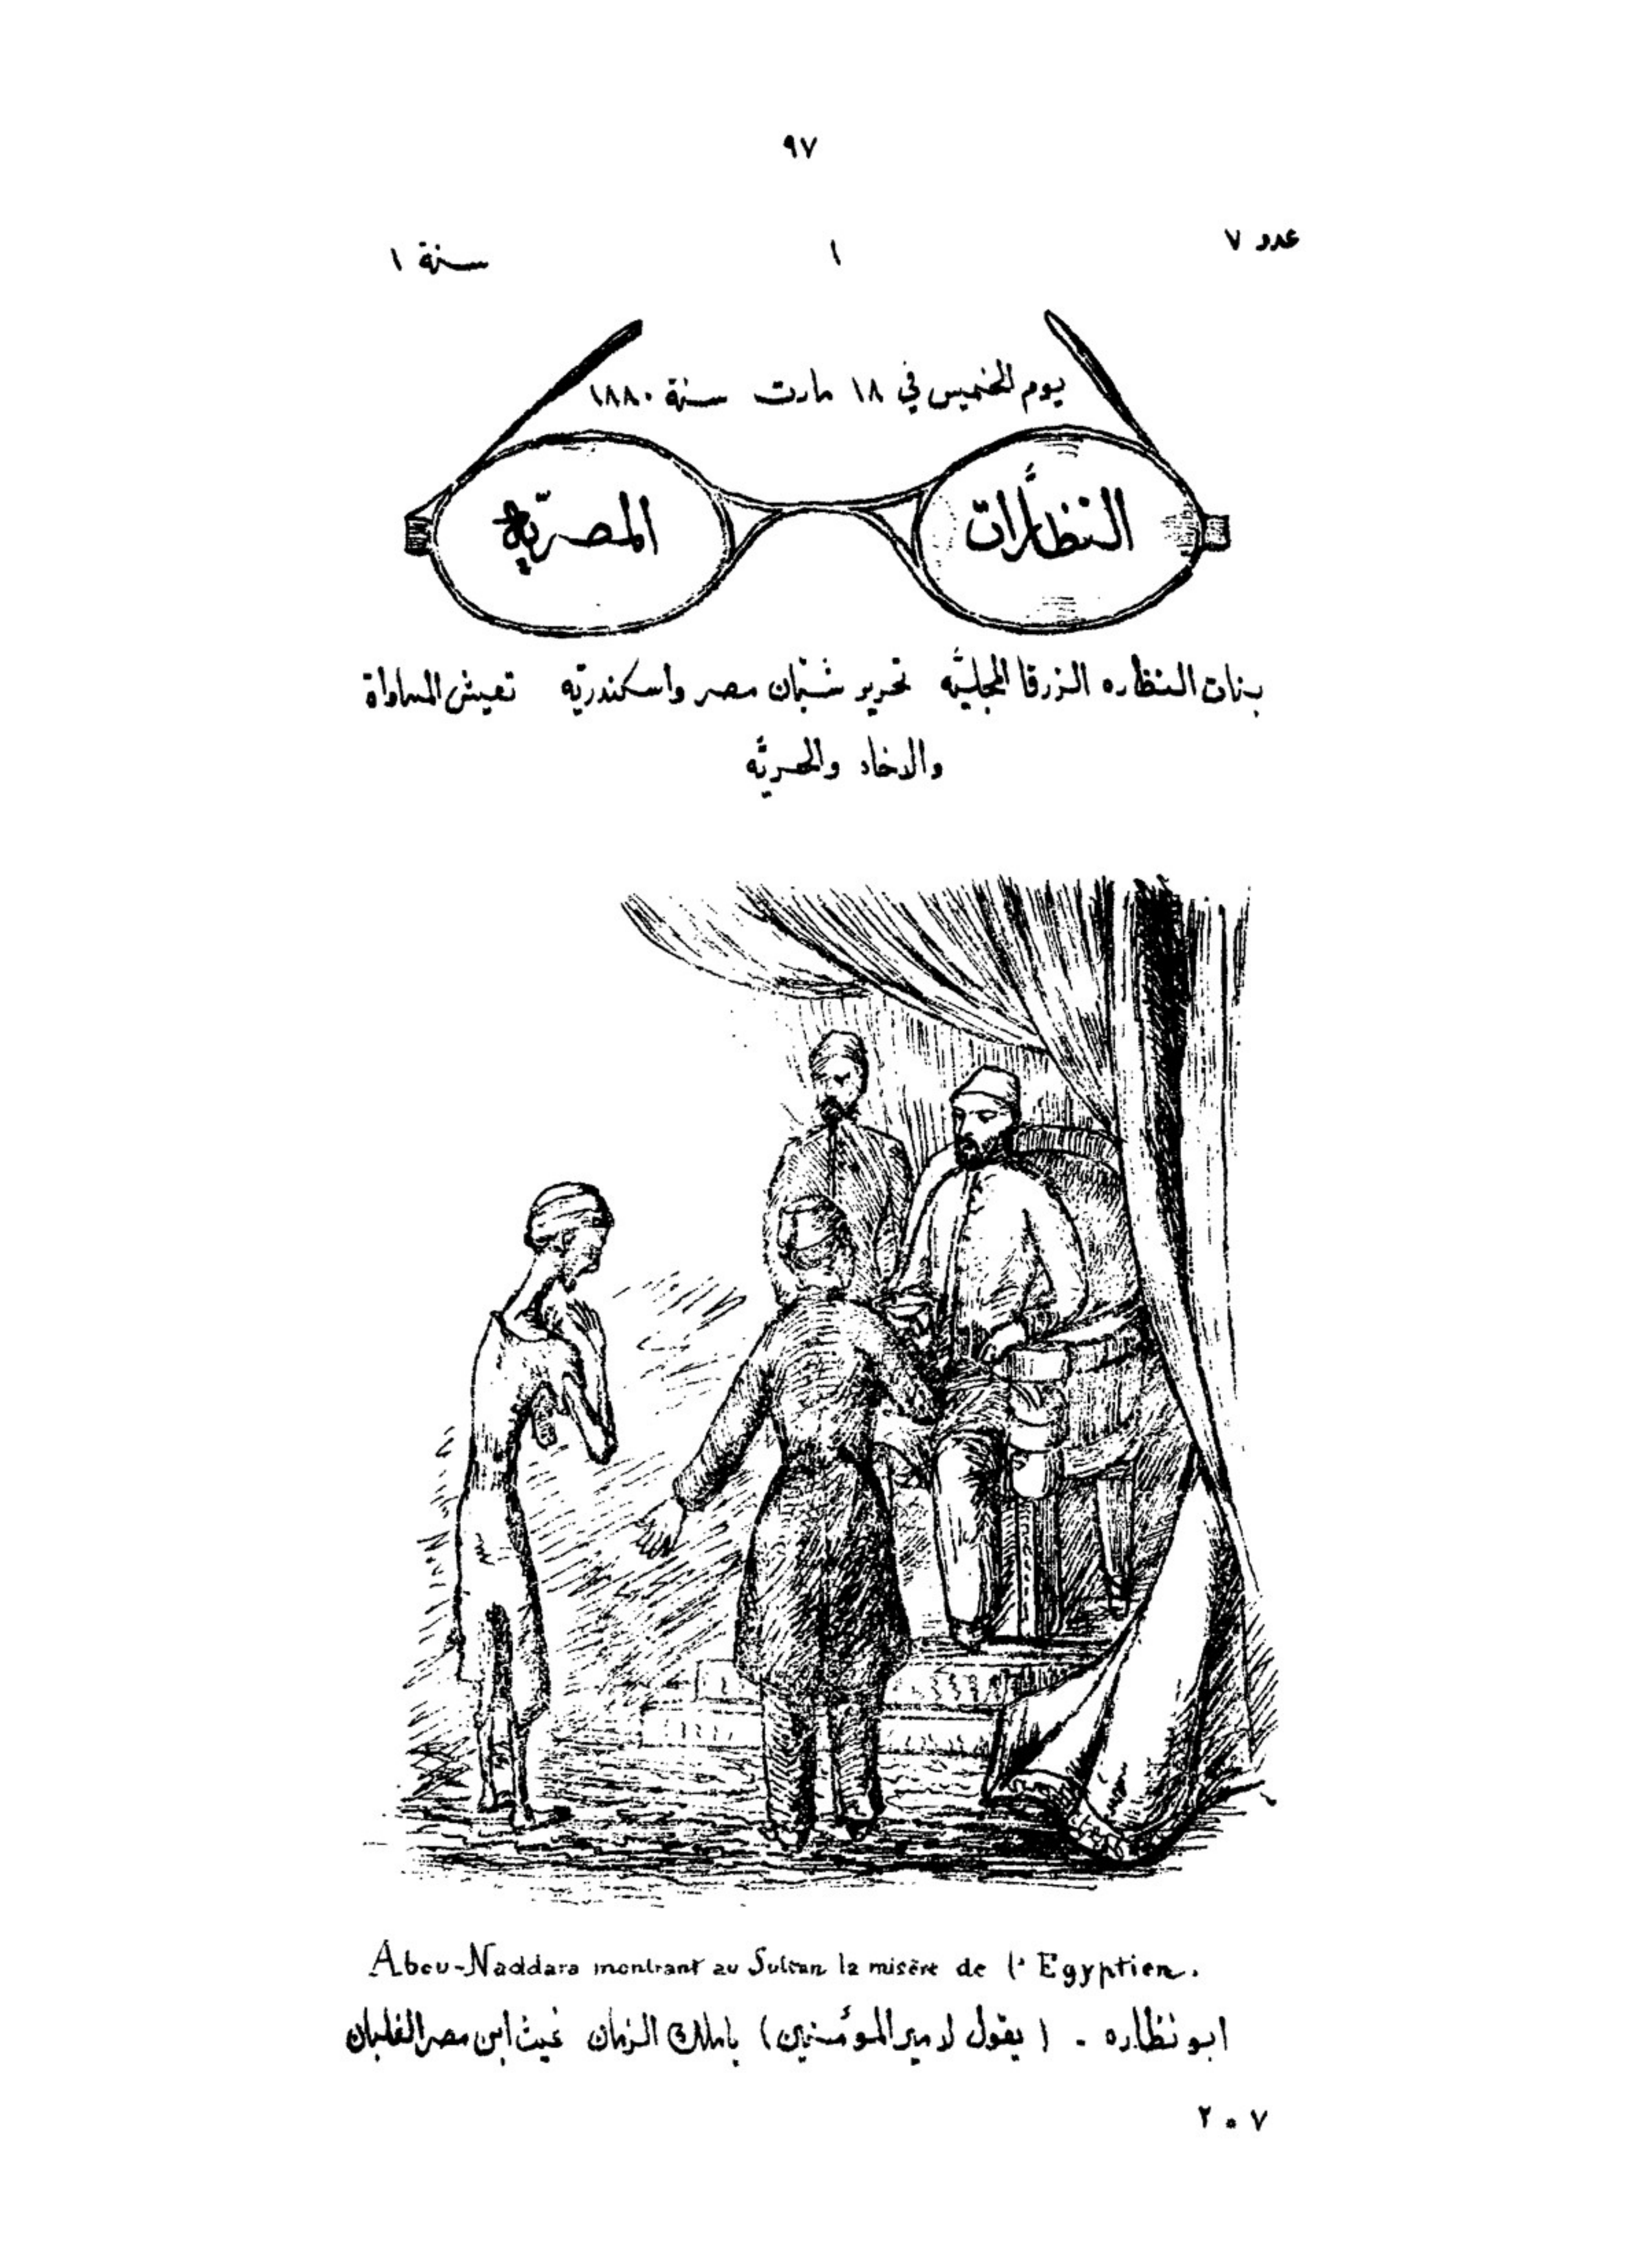 ٩٧
عدد ٧
١
سنة ١
يوم الخميس في ١٨ مارت سنة ١٨٨٠
النظّارات
المصريّه
بنات النظاره الزرقا المجليّه تحرير شبّان مصر واسكندريّه تعيش المساواة
والاخاء والحريّه
Abou-Naddara montrant au Sultan la misère de l'Egyptien.
ابو نظاره - (يقول لامير المؤمنين) ياملك الزمان غيث ابن مصر الغلبان
٢٠٧